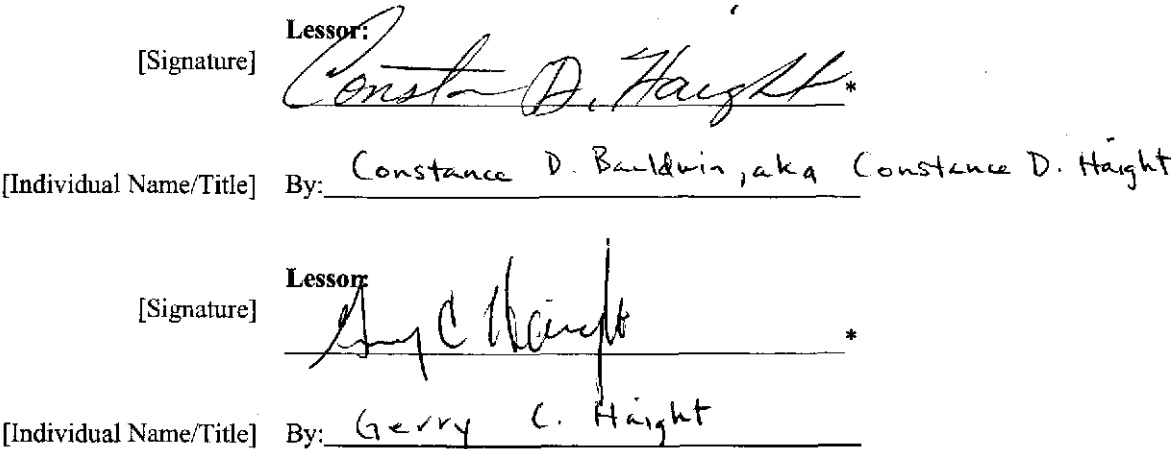 Lessor:
[Signature] Constan D. Haight *
[Individual Name/Title] By: Constance D. Bauldwin, aka Constance D. Haight
Lessor:
[Signature] Gerry C Haight *
[Individual Name/Title] By: Gerry C. Haight